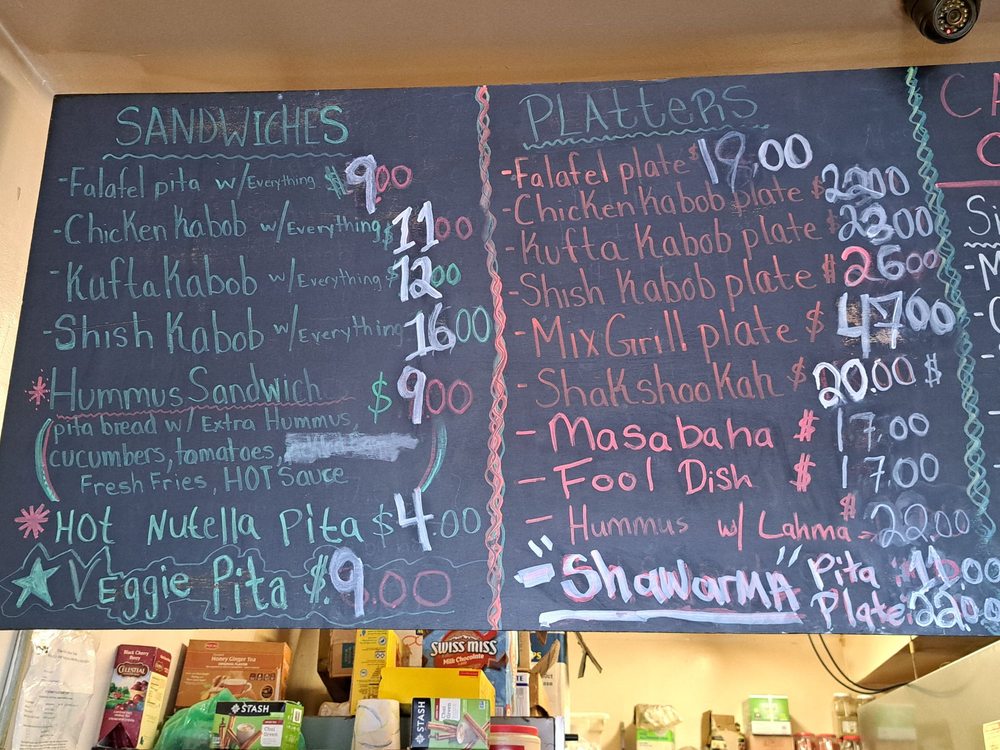 SANDWICHES
-Falafel pita w/Everything $9.00
-Chicken Kabob w/Everything $11.00
-Kufta Kabob w/Everything $12.00
-Shish Kabob w/Everything 16.00
*Hummus Sandwich $9.00
(pita bread w/ Extra Hummus,
cucumbers, tomatoes,
Fresh Fries, HOT Sauce)
*HOT Nutella Pita $4.00
Veggie Pita $9.00
PLatters
-Falafel plate $19.00
-Chicken Kabob plate $22.00
-Kufta Kabob plate $23.00
-Shish Kabob plate $26.00
-Mix Grill plate $47.00
-ShakshooKah $20.00 $
-Masabaha $17.00
-Fool Dish $17.00
-Hummus w/ Lahma $22.00
-"ShawarMA" Pita 11.00
Plate: 22.0
Black Cherry Berry
CELESTIAL
Honey Ginger Tea
STASH
Chai Green
SWISS MISS
Milk Chocolate
STASH
Chai Green